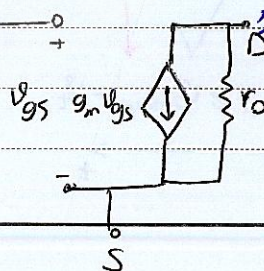 + D
v_gs g_m v_gs r_o
-
S